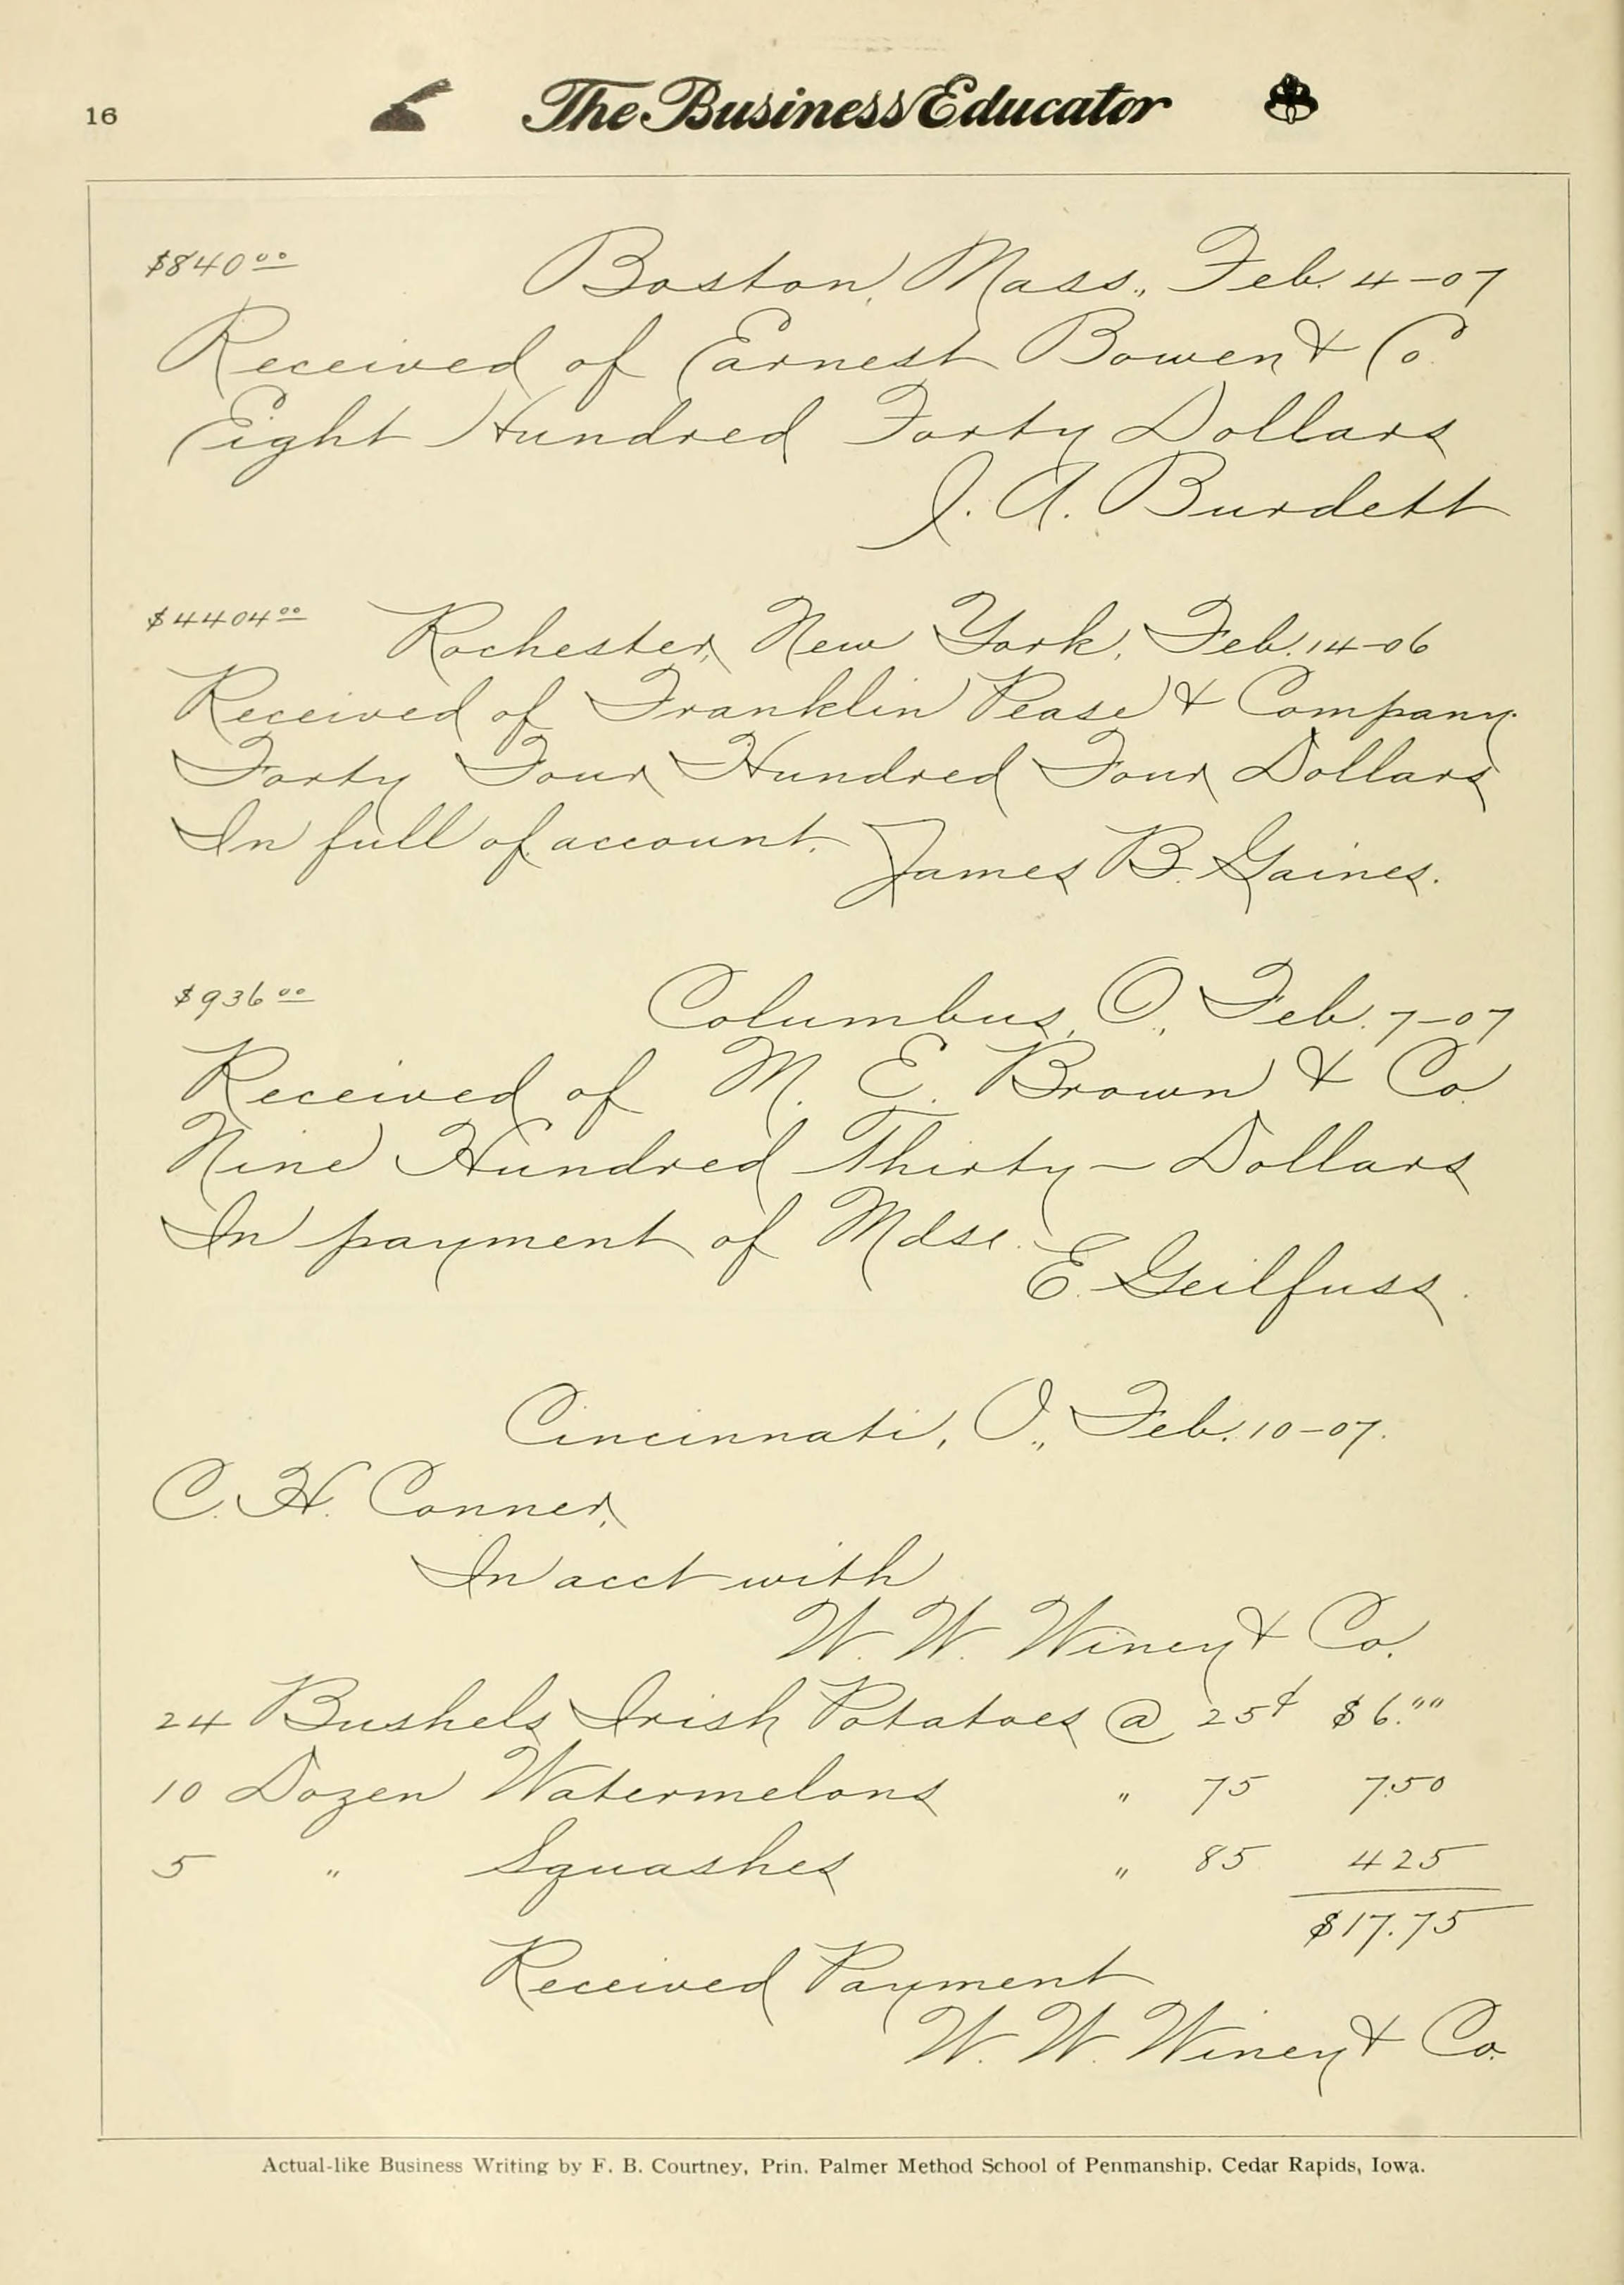 16
The Business Educator
$840 00 Boston, Mass., Feb. 4-07
Received of Earnest Bowen & Co.
Eight Hundred Forty Dollars
J. A. Burdett
$4404 00 Rochester, New York, Feb. 14-06
Received of Franklin Pease & Company.
Forty Four Hundred Four Dollars
In full of account. James B. Gaines.
$936 00 Columbus, O., Feb. 7-07
Received of M. E. Brown & Co.
Nine Hundred Thirty - Dollars
In payment of Mdse.
E. Geilfuss.
Cincinnati, O., Feb. 10-07.
C. H. Conner,
In acct with
W. W. Winey & Co.
24 Bushels Irish Potatoes @ 25¢ $6.""
10 Dozen Watermelons " 75 7.50
5 " Squashes " 85 425
$17.75
Received Payment
W. W. Winey & Co.
Actual-like Business Writing by F. B. Courtney, Prin. Palmer Method School of Penmanship, Cedar Rapids, Iowa.